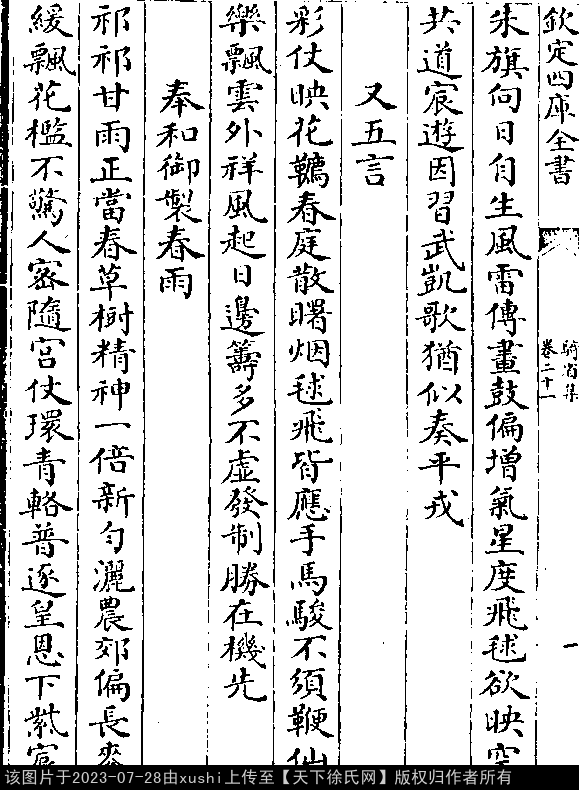 欽定四庫全書
騎省集
卷二十一
一
朱旗向日自生風雷傳畫鼓偏増氣星度飛毬欲映空
共道宸遊因習武凱歌猶似奏平戎
又五言
彩仗映花韉春庭散曙烟毬飛皆應手馬駿不須鞭仙
樂飄雲外祥風起日邊籌多不虚發制勝在機先
奉和御製春雨
祁祁甘雨正當春草樹精神一倍新勻灑農郊偏長麥
緩飄花檻不驚人密隨宫仗環青輅普逐皇恩下紫宸
该图片于2023-07-28由xushi上传至【天下徐氏网】版权归作者所有